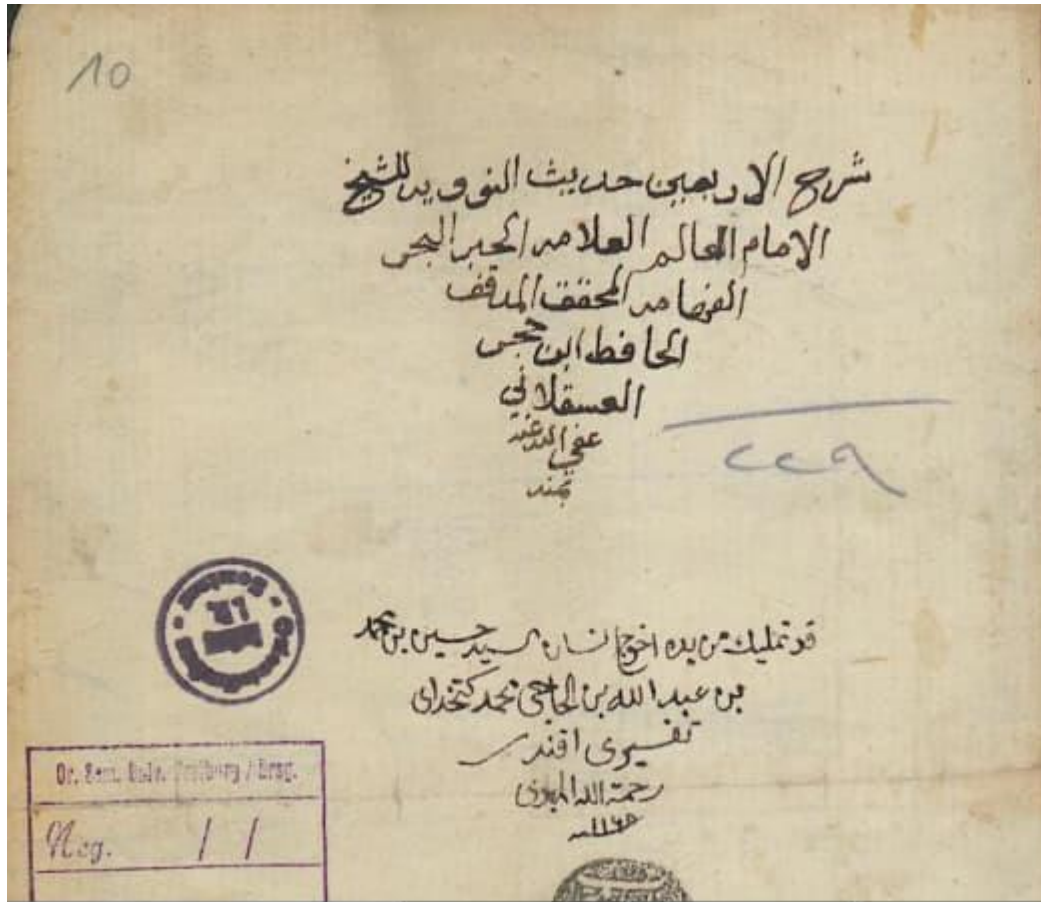 10
شرح الاربعين حديث النوويه للشيخ
الامام العالم العلامه الحبر البحر
الفهامه المحقق المدقق
الحافظ ابن حجر
العسقلاني
عفي الله عنه
بمنه
٢٢٩
قد تمليك من يده السيد حسين بن محمد
بن عبد الله بن الحاجي محمد كتخداى
افندى
رحمة الله الهادى
Or. Sem. Univ. Freiburg / Brsg.
Neg. / /